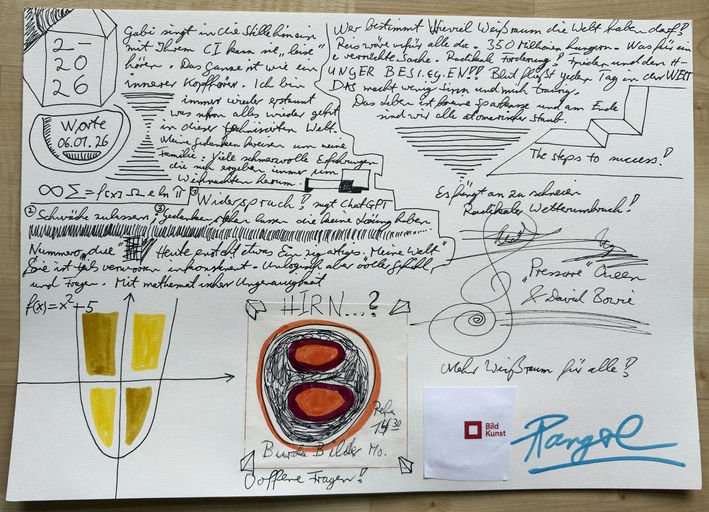 2-
20
26
Worte
06.01.26
Gabi singt in die Stille hinein
mit Ihrem CI kann sie „leise"
hören. Das Ganze ist wie ein
innerer Kopfhörer. Ich bin
immer wieder erstaunt
was schon alles wieder geht
in dieser technisierten Welt.
Meine Gedanken kreisen um meine
Familie: Viele schmerzvolle Erfahrungen
die sich ergeben immer um
Weihnachten herum.
Wer bestimmt Wieviel Weißraum die Welt haben darf?
Reis wäre für alle da. 350 Millionen hungern. Was für ein
e verrückte Sache. Radikale Forderung! Frieden und den H-
UNGER BESI.EG.EN!! Blut fließt jeden Tag in der WELT
DAS macht wenig Sinn und mich traurig.
Das Leben ist keine Spartasse und am Ende
sind wir alle atomarischer Staub.
The steps to success!?
∞ Σ = f(x) Ω e ln π
① Widerspruch!? sagt ChatGPT
② Schwäche zulassen! ③ Gedanken stehen lassen die keine Lösung haben
Nummero „due" Heute entsteht etwas Einzigartiges „Meine Welt"
Sie ist teils verworren inkonsistent. Unlogisch aber voller Gefühl
und Fragen. Mit mathematischer Ungenauigkeit
f(x) = x²+5
Es fängt an zu schneien
Radikaler Wetterumbruch!
„Pressure" Queen
& David Bowie
HIRN...?
Reha
14 30
Burda Bilder Mo.
offene Fragen!?
Mehr Weißraum für alle!?
Bild
Kunst
Rangol